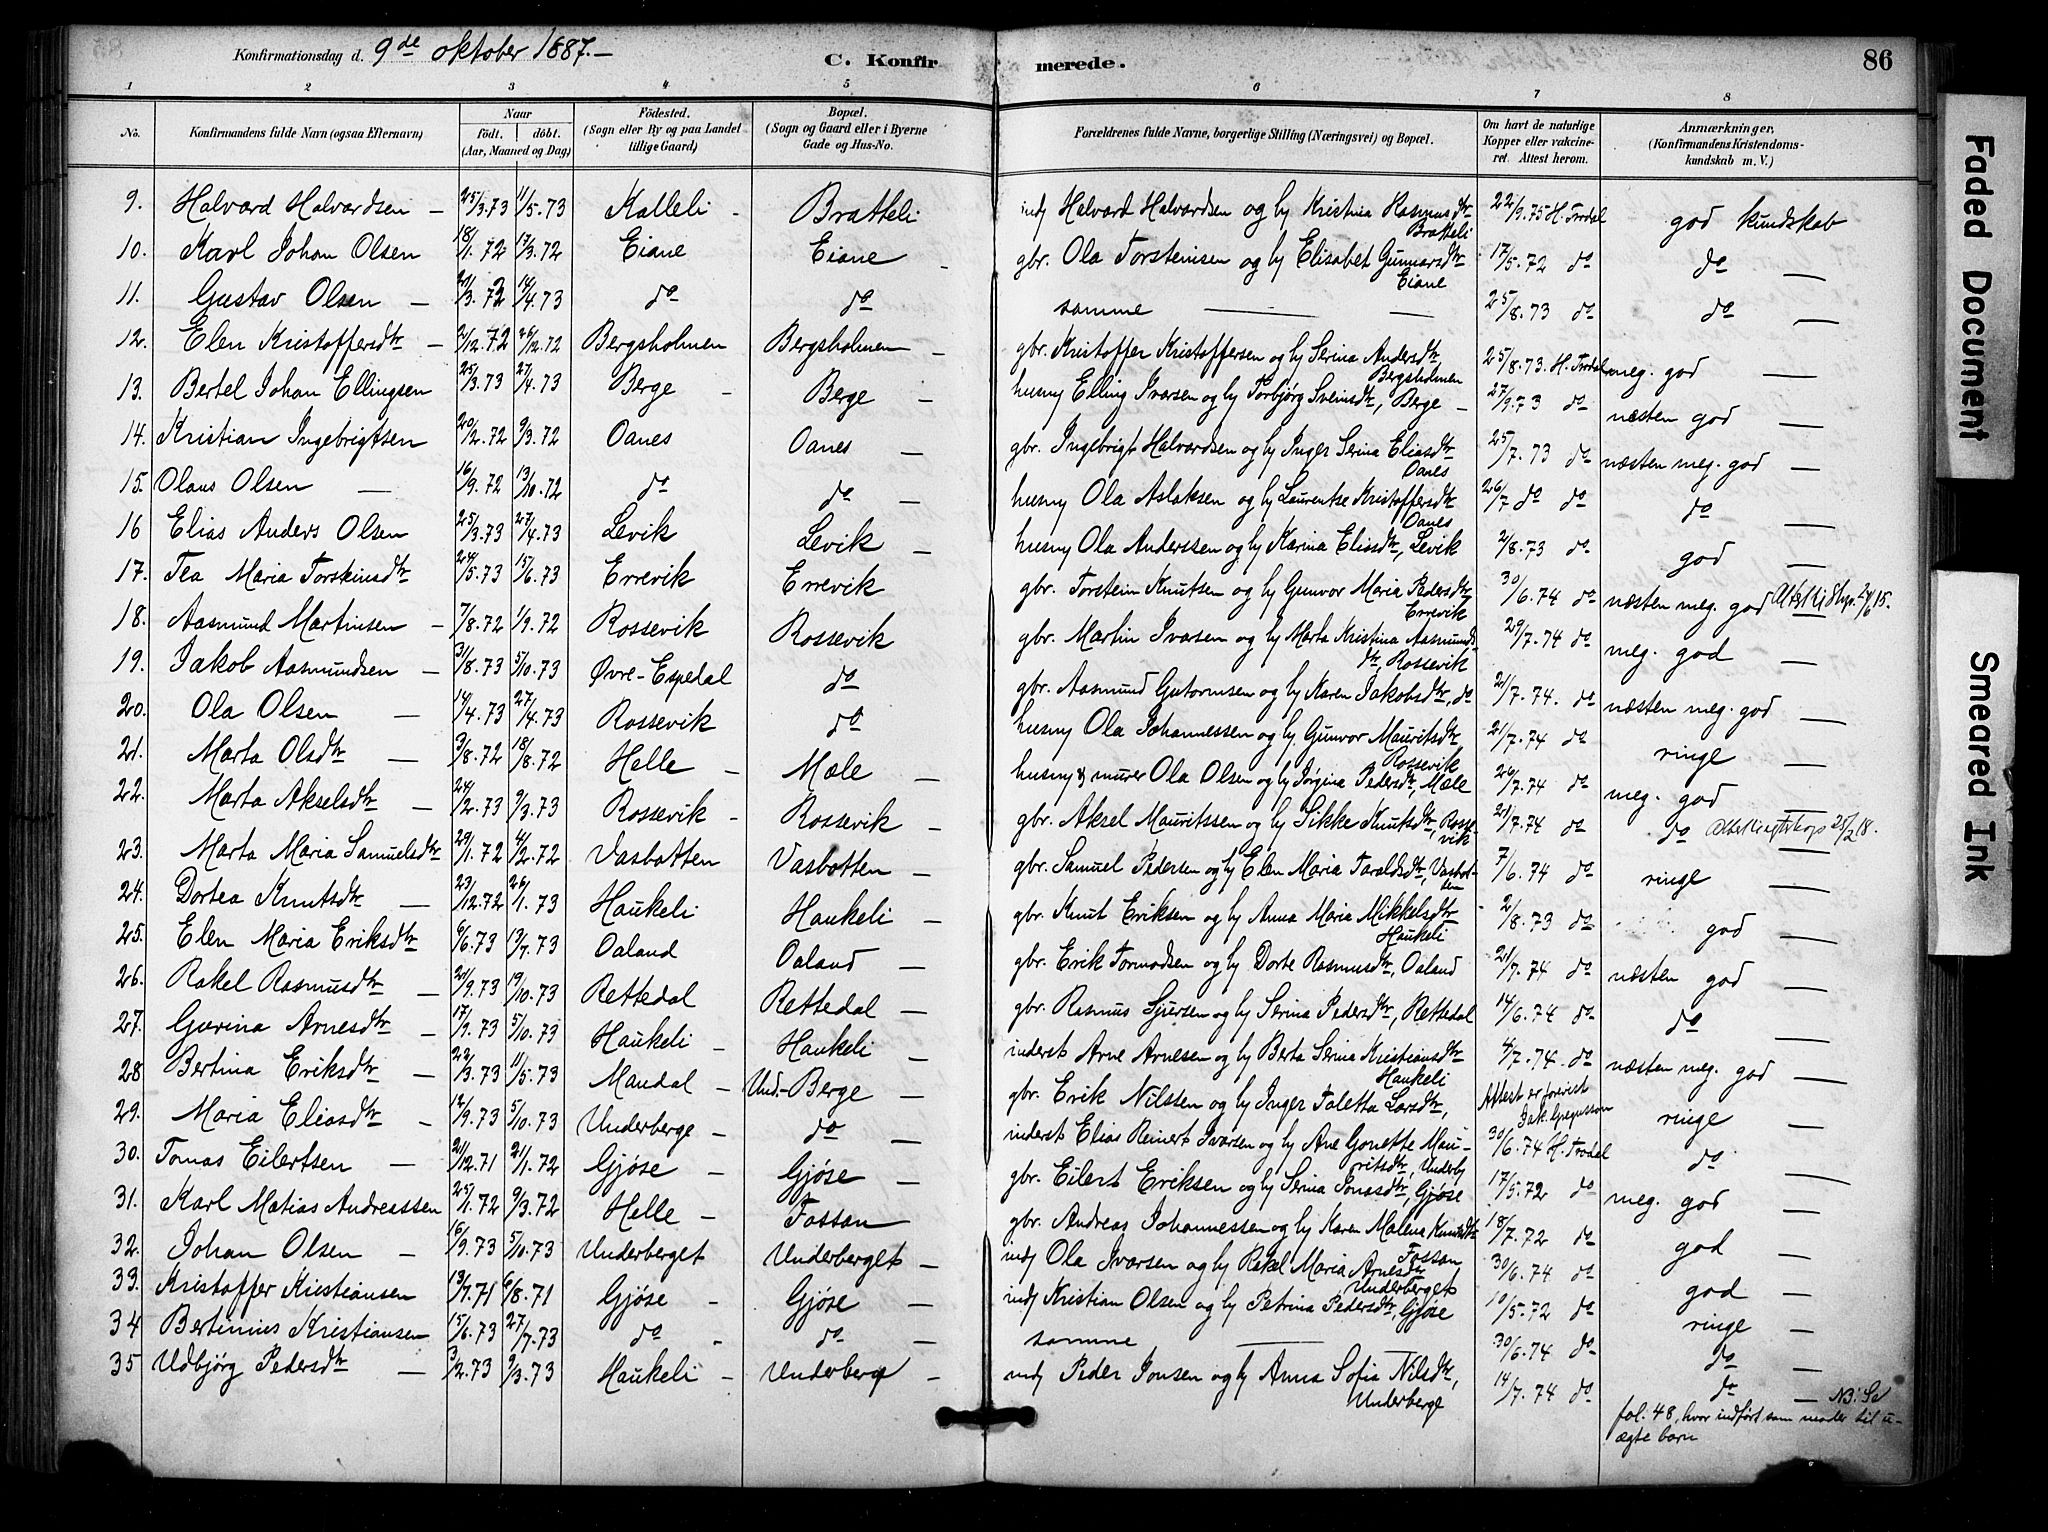 Konfirmationsdag d. 9de oktober 1887.—
C. Konfirmerede.
86
1 2 3 4 5 6 7 8
No. Konfirmandens fulde Navn (ogsaa Efternavn) Naar födt. döbt. (Aar, Maaned og Dag) Födested. (Sogn eller By og paa Landet tillige Gaard) Bopæl. (Sogn og Gaard eller i Byerne Gade og Hus-No. Forældrenes fulde Navne, borgerlige Stilling (Næringsvei) og Bopæl. Om havt de naturlige Kopper eller vakcineret. Attest herom. Anmærkninger, (Konfirmandens Kristendomskundskab m. V.)
9. Halvard Halvardsen — 25/3.73 11/5.73 Kalleli - Bratteli indj Halvard Halvardsen og hy Kristina Rasmusdtr Bratteli 22/9.75 H. Trodal god kundskab
10. Karl Johan Olsen 18/1.72 17/3.72 Eiane Eiane - gbr. Ola Torsteinsen og hy Elisabet Gunnarsdtr Eiane 17/5.72 do do —
11. Gustav Olsen — /3.72 14/4.73 do do samme — — 25/8.73 do do —
12. Elen Kristoffersdtr - 2/12.72 26/12.72 Bergsholmen Bergsholmen - gbr. Kristoffer Kristoffersen og hy Serina Andersdtr, Bergsholmen 25/8.73. H. Trodal meg. god —
13. Bertel Johan Ellingsen 25/3.73 27/4.73 Berge - Berge — husmj Elling Iversen og hy Torbjørg Sveinsdtr, Berge - 27/9.73 do næsten god —
14. Kristian Ingebrigtsen 20/2.72 9/3.72 Oanes Oanes — gbr. Ingebrigt Halvardsen og hy Inger Serina Eliasdtr Oanes 25/7.73 do næsten meg. god —
15. Olaus Olsen — 16/9.72 13/10.72 do do — husmj Ola Aslaksen og hy Laurentse Kristoffersdtr Oanes 26/7 do do do —
16 Elias Anders Olsen 25/3.73 27/4.73 Levik Levik — husmj Ola Anderssen og hy Karina Eliasdtr, Levik 2/8.73 do god —
17. Tea Maria Torsteinsdtr 24/5.73 15/6.73 Errevik Errevik gbr. Torstein Knutsen og hy Gunvor Maria Pedersdtr Errevik 30/6.74 do næsten meg. god
18. Aasmund Martinsen - 7/8.72 1/9.72 Rossevik Rossevik gbr. Martin Ivarsen og hy Marta Kristina Aasmundsdtr Rossevik 29/7.74 do meg. god —
19. Jakob Aasmundsen — 31/8.73 5/10.73 Øvre-Espedal do gbr. Aasmund Gutormsen og hy Karen Jakobsdtr, do 21/7.74. do næsten meg. god —
20. Ola Olsen — 14/4.73 27/4.73 Rossevik do husmj Ola Johannessen og hy Gunvor Mauritsdtr Rossevik 21/7.74 do ringe —
21. Marta Olsdtr — 3/8.72 18/8.72 Helle - Mæle — husmj & murer Ola Olsen og hy Jørgina Pedersdtr, Mæle 26/7.74 do meg. god —
22. Marta Akselsdtr — 24/2.73 9/3.73 Rossevik - Rossevik - gbr. Aksel Mauritssen og hy Sikke Knutsdtr, Rossevik 21/7.74 do do 25/2 18.
23. Marta Maria Samuelsdtr 29/1.72 4/2.72 Vasbotten Vasbotten — gbr. Samuel Pedersen og hy Elen Maria Taraldsdtr, Vasbotten 7/6.74 do ringe —
24. Dortea Knutsdtr — 23/12.72 26/1.73 Haukeli - Haukeli — gbr. Knut Eriksen og hy Anna Maria Mikkelsdtr Haukeli 2/8.73 do god —
25. Elen Maria Eriksdtr 6/6.73 13/7.73 Oaland Oaland — gbr. Erik Tormodsen og hy Dorte Rasmusdtr, Oaland 21/7.74 do næsten god —
26. Rakel Rasmusdtr — 21/9.73 19/10.73 Rettedal Rettedal — gbr. Rasmus Sjursen og hy Serina Pedersdtr, Rettedal 14/6.74 do do —
27. Gurina Arnesdtr — 17/9.73 5/10.73 Haukeli - Haukeli — inderst Arne Arnesen og hy Berta Serina Kristiansdtr Haukeli 4/7.74. do næsten meg. god —
28 Bertina Eriksdtr — 22/3.73 11/5.73 Mandal - Und.-Berge — gbr. Erik Nilssen og hy Inger Taletta Larsdtr, Attest er forevist Jak. Gregussen ringe —
29. Maria Eliasdtr - 12/9.73 5/10.73 Underberge - do — inderst Elias Reinert Ivarsen og hy Ane Gonette Mauritsdtr, Underb 30/6.74 H. Trodal do —
30. Tomas Eilertsen — 21/12.71 21/1.72 Gjøse - Gjøse — gbr. Eilert Eriksen og hy Serina Jonasdtr, Gjøse 17/5.72 do meg. god —
31. Karl Matias Andreassen 25/1.72 9/3.72 Helle - Fossan gbr. Andreas Johannessen og hy Karen Malena Knutsdtr Fossan 18/7.72 do god —
32. Johan Olsen — 6/9.73 5/10.73 Underberget Underberget — indj Ola Ivarsen og hy Rakel Maria Arnesdtr Underberget 30/6.74 do god —
33. Kristoffer Kristiansen 13/7.71 6/8.71 Gjøse - Gjøse — indj Kristian Olsen og hy Petrina Pedersdtr, Gjøse 10/5.72 do ringe —
34 Bertinius Kristiansen 15/6.73 27/7.73 do - do — samme — 30/6.74 do do —
35 Udbjørg Pedersdtr — 3/2.73 9/3.73 Haukeli - Underberge - indj Peder Jonsen og hy Anna Sofia Nilsdtr, Underberge 14/7.74 do do — NB: Se
fol. 48, hvor indført som moder til u-
ægte barn
Faded Document
Smeared Ink